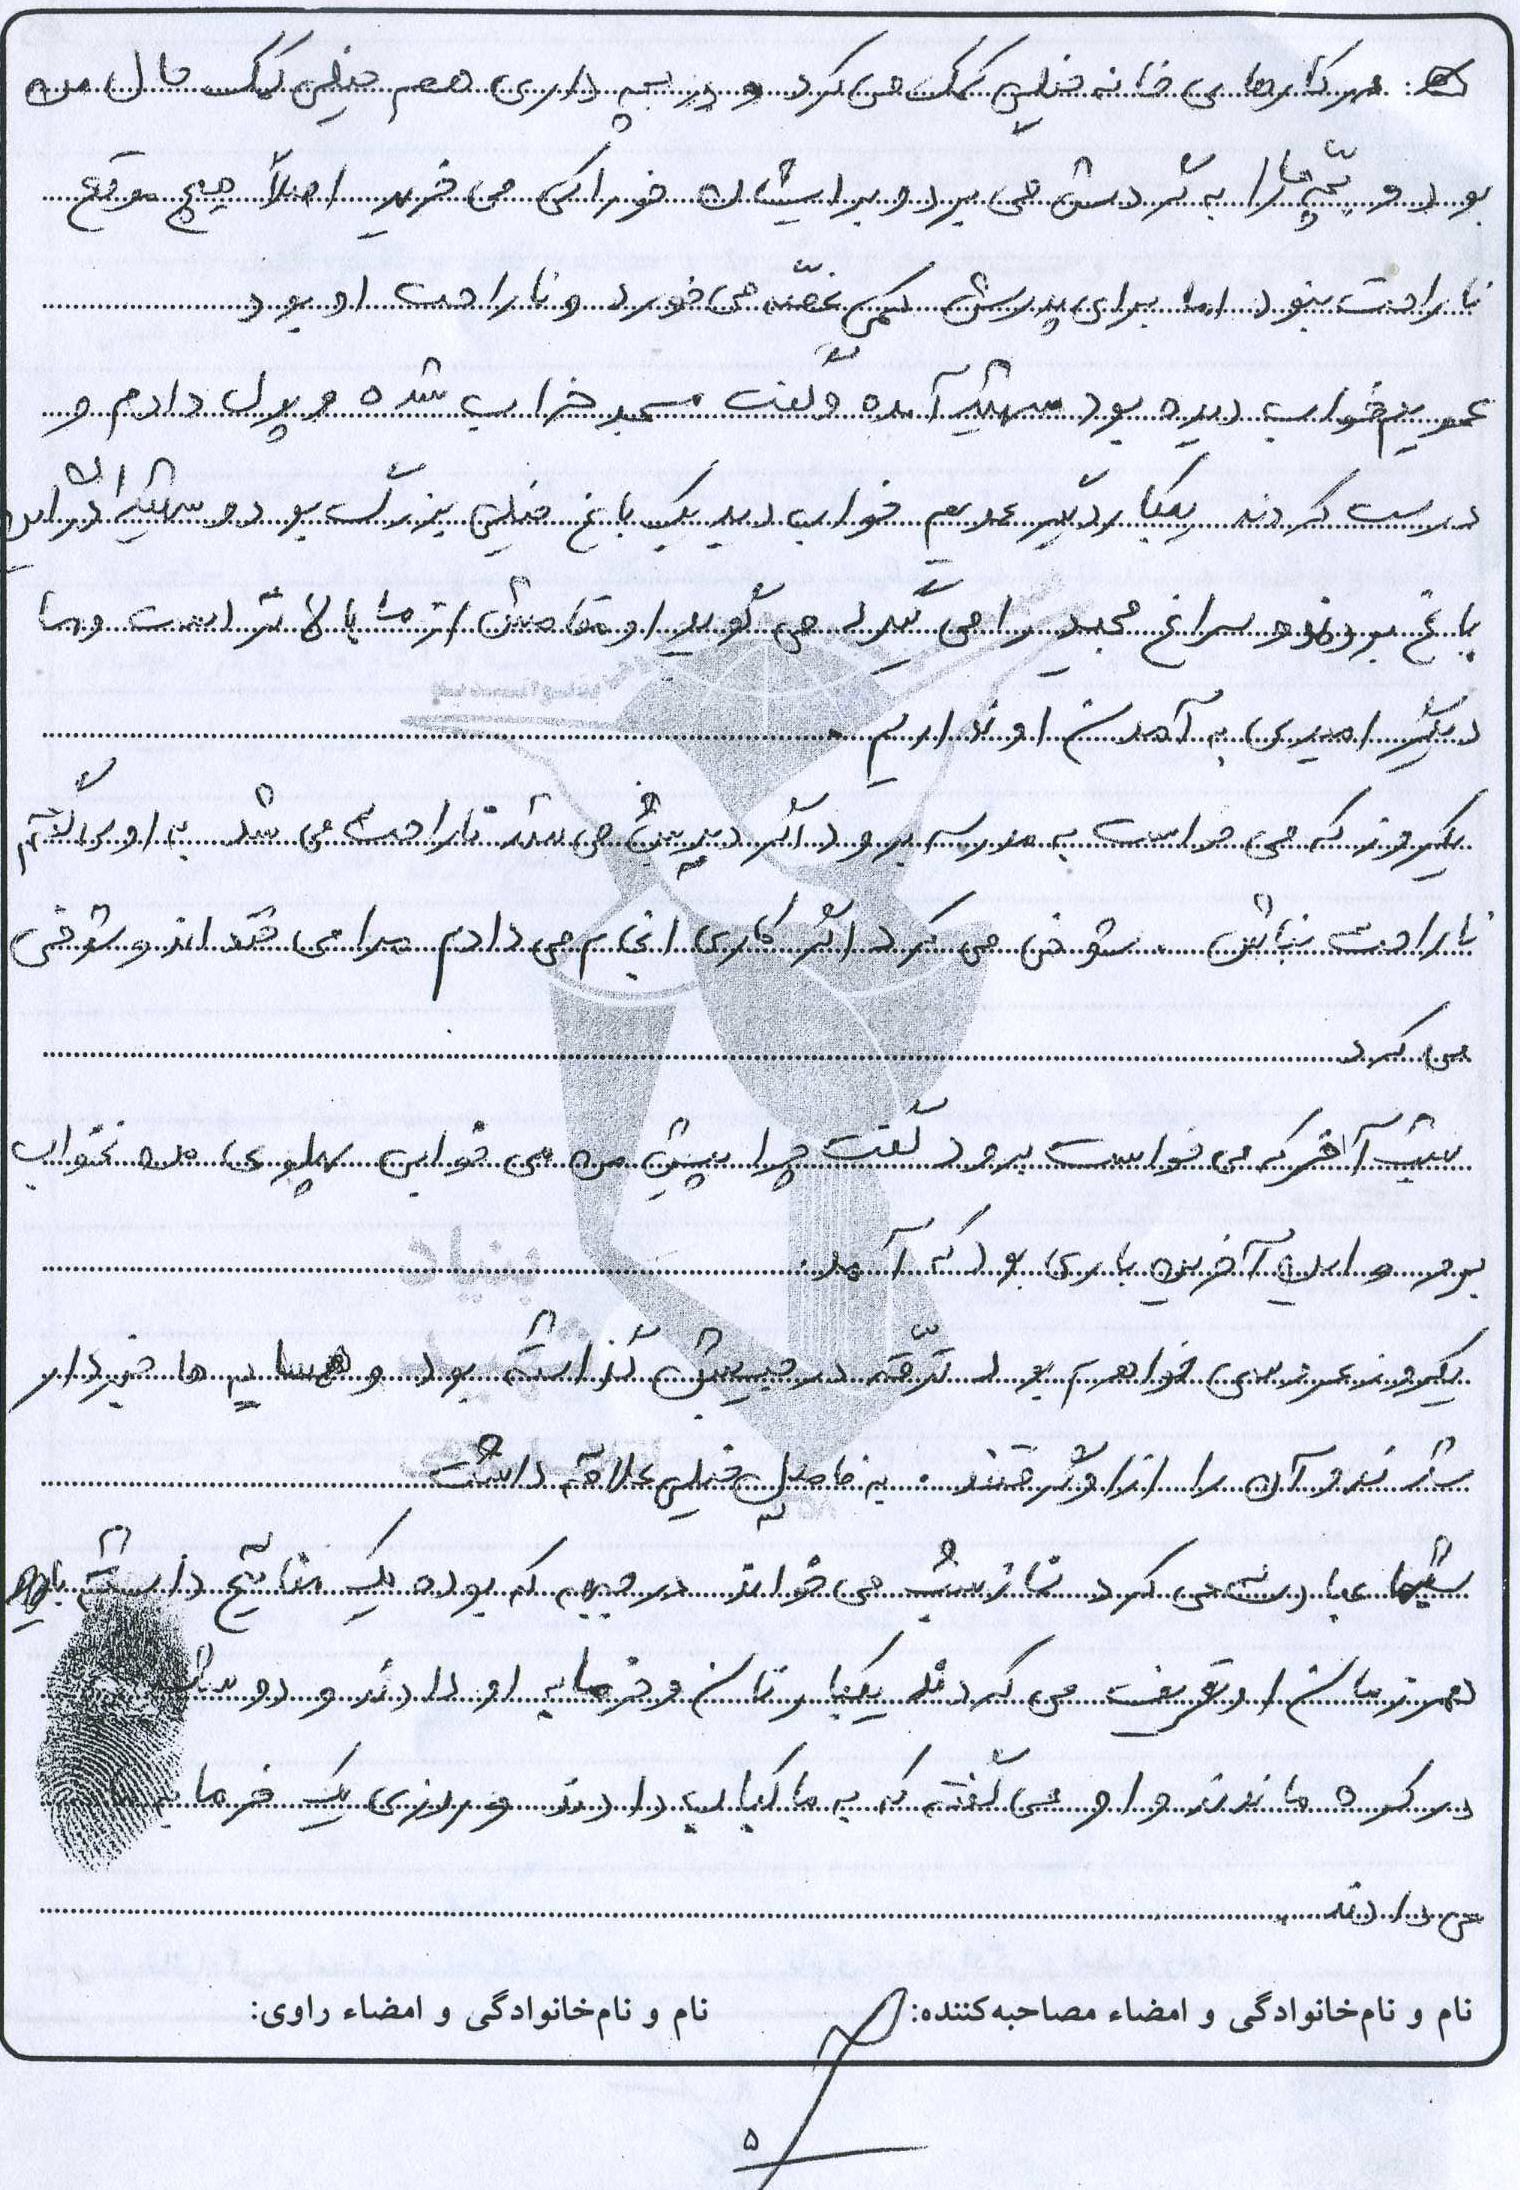 در کارهای خانه خیلی کمک می کرد و در بچه داری هم خیلی کمک حال من
بود و بچّه ها را به گردش می برد و برایشان خوراکی می خرید اصلاً هیچ موقع
ناراحت نبود اما برای پدرش کمی غصّه می خورد و ناراحت او بود
عمویم خواب دیده بود شهید آمده و گفت مسجد خراب شده و پول دادم و
درست کردند یکبار دیگر عمویم خواب دید یک باغ خیلی بزرگ بود و شهیدان در این
باغ بودند و سراغ مجید را می گیرد می گوید او مقامش از ما بالاتر است و ما
دیگر امیدی به آمدن او نداریم .
یکروز که می خواست به مدرسه برود اگر دیرش می شد ناراحت می شد به او می گفتم
ناراحت نباش . شوخی می کرد اگر کاری انجام می دادم مرا می خنداند و شوخی
می کرد
شب آخر که می خواست برود گفت چرا پیش من می خوابی پهلوی من نخواب
برو و این آخرین باری بود که آمد.
یکروز عروسی خواهرم بود ترقّه در جیبش گذاشته بود و همسایه ها خبردار
شدند و آن را از او گرفتند . به فامیل خیلی علاقه داشت
شبها عبادت می کرد نماز شب می خواند در جبهه که بوده یک متاشیح داشته
همرزمان او تعریف می کردند یکبار نان و خرما به او دادند و دوستان
در کوه ماندند و او می گفته که به ما کباب دادند و روزی یک خرما به ما
می دادند
نام و نام‌خانوادگی و امضاء مصاحبه‌کننده:
نام و نام‌خانوادگی و امضاء راوی:
بنیاد
شهید
۵